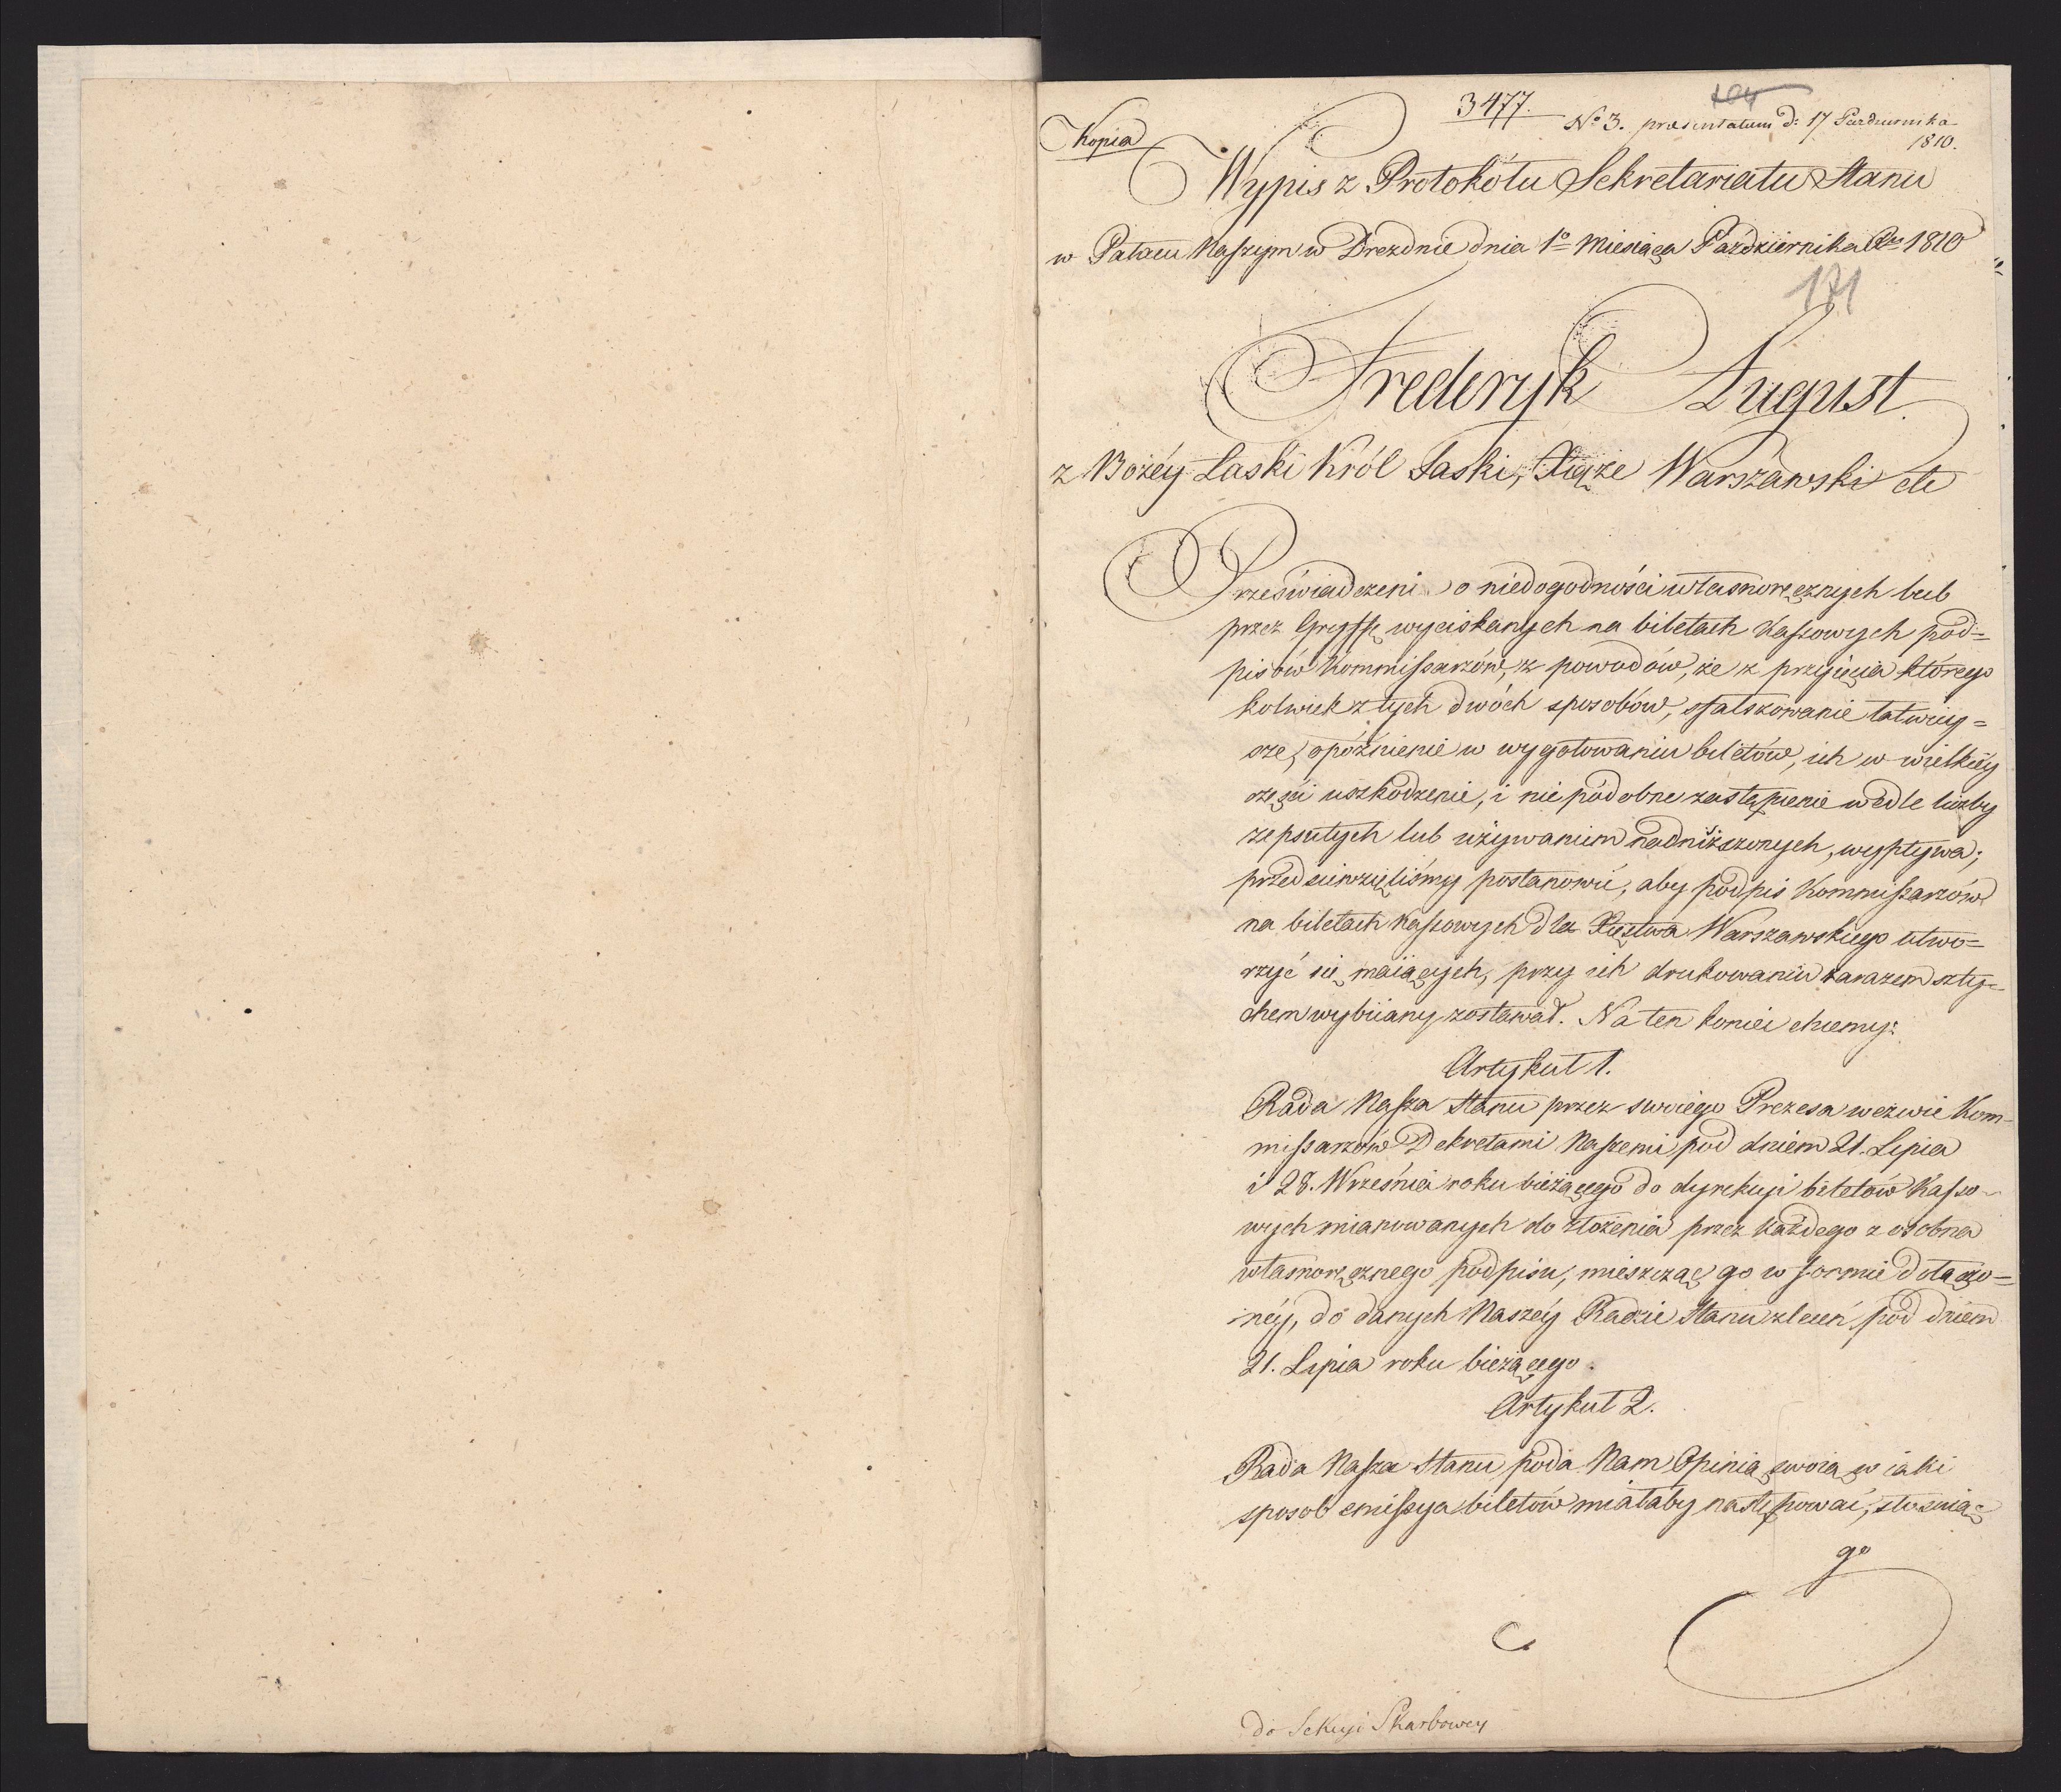 3477.
Kopia
No 3. praesentatum d: 17 Pazdziernika
1810.
Wypis z Protokółu Sekretariatu Stanu
w Pałacu Naszym w Dreznie dnia 1o Miesiąca Październik​a Ru 1810
171
Frederyk August
z Bożéy Łaski Król Saski, Xiąże Warszawski etc
Przeświadczeni o niedogodności własnoręcznych lub
przez Gryffę wyciskanych na biletach Kassowych pod=
pisów Kommissarzów, z powodów, że z przyięcia którego
kolwiek z tych dwóch sposobów, sfałszowanie łatwiey=
sze, opóźnienie w wygotowaniu biletów, ich w wielkiéy
części uszkodzenie, i nie podobne zastąpienie wedle liczby
zepsutych lub używaniem nadniszczonych, wypływa;
przedsięwzięliśmy postanowić, aby podpis Kommissarzów
na biletach Kassowych dla Xięstwa Warszawskiego utwo=
rzyć się maiących, przy ich drukowaniu zarazem szty=
chem wybiiany zostawał. Na ten koniec chcemy:
Artykuł 1.
Rada Nasza Stanu przez swoiego Prezesa wezwie Kom-
missarzów Dekretami Naszemi pod dniem 21. Lipca
i 28. Września roku bieżącego do dyrekcyi biletów Kasso-
wych mianowanych do złożenia przez każdego z osobna
własnoręcznego podpisu, mieszcząc go w formie dołączo=
néy, do danych Naszéy Radzie Stanu zleceń pod dniem
21. Lipca roku bieżącego.
Artykuł 2.
Rada Nasza Stanu poda Nam Opinią swoią w iaki
sposob emissya biletów miałaby następować, stosuiąc
go
Do Sekcyi Skarbowey